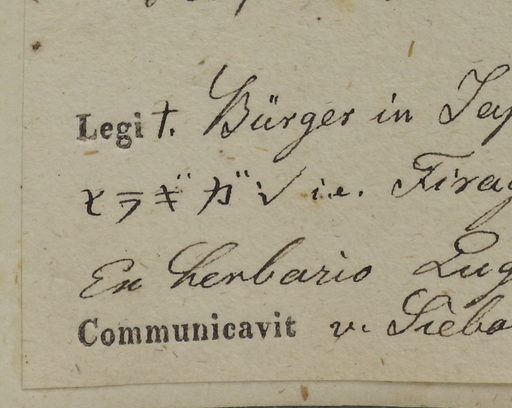 Legit. Bürger in Jap
ヒラギガシ i.e. Firag
Ex herbario Lug
Communicavit v. Siebo